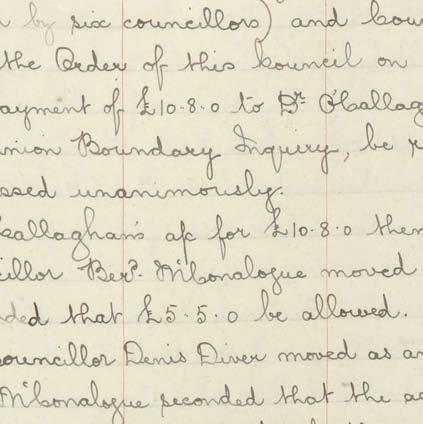 by six councillors) and Cou
the Order of this Council on
ayment of £10.8.0 to Dr. O'Callag
nion Boundary Inquiry, be r
ssed unanimously.
Callaghan's a/c for £10.8.0 then
cillor Berd. McGonalogue moved
ded that £5.5.0 be allowed.
Councillor Denis Diver moved as an
McGonalogue seconded that the ac